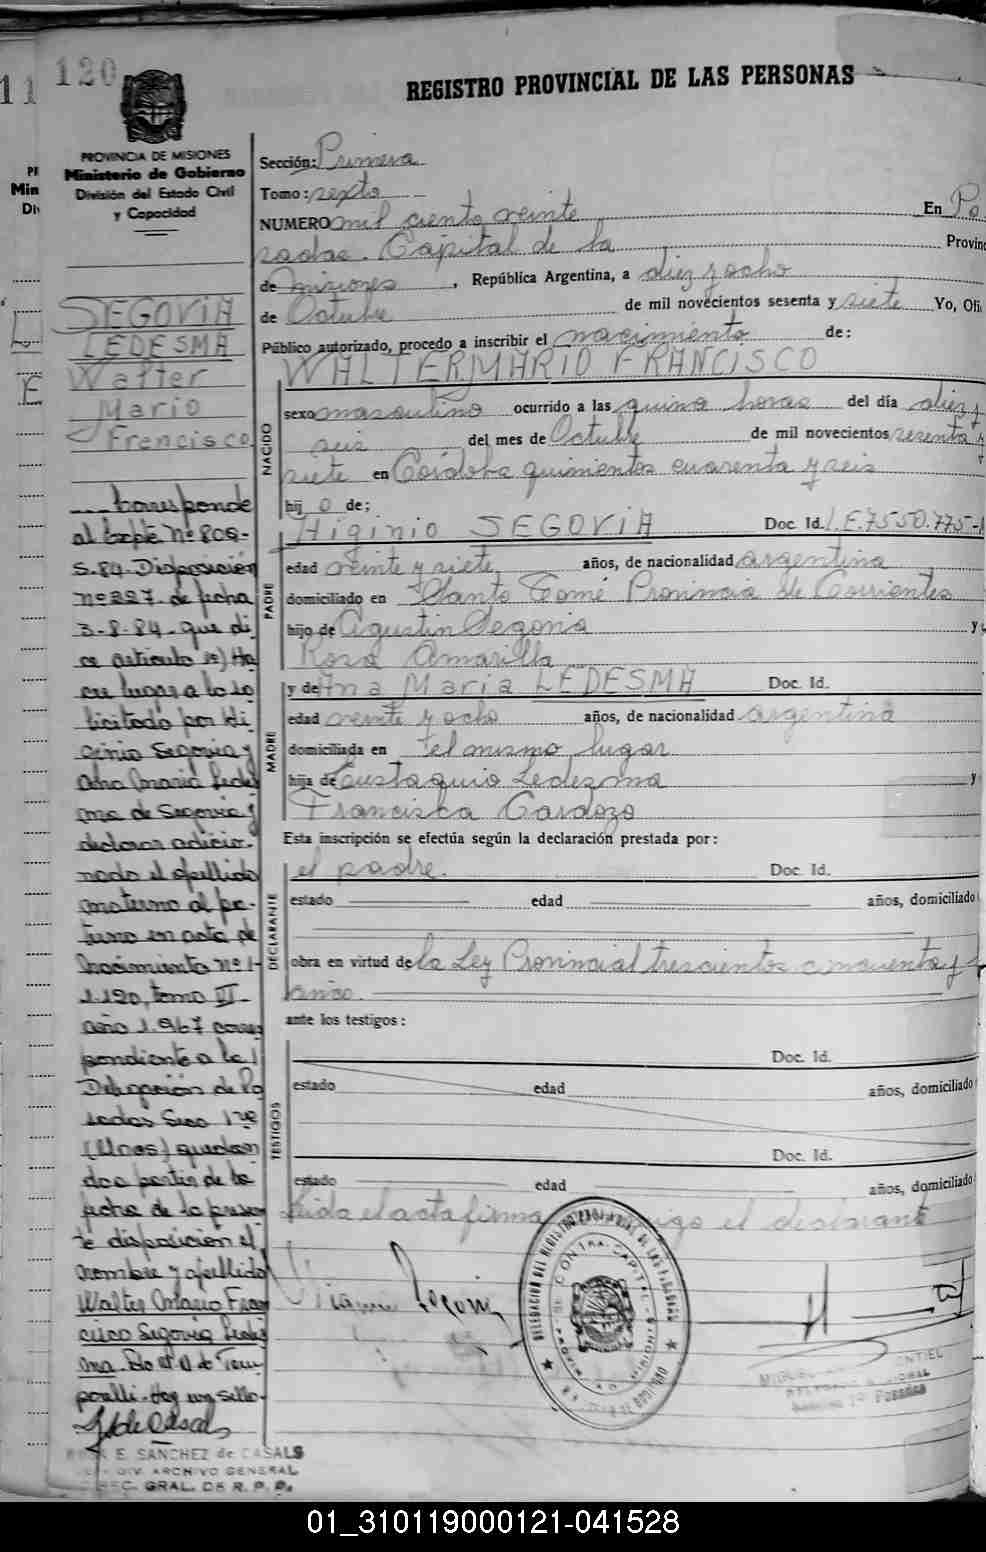 120
11
REGISTRO PROVINCIAL DE LAS PERSONAS
PROVINCIA DE MISIONES
Ministerio de Gobierno
División del Estado Civil
y Capacidad
Sección: Primera
Tomo: sexto
NUMERO mil ciento veinte En Po
sadas. Capital de la Provinc
de Misiones, República Argentina, a diez y ocho
de Octubre de mil novecientos sesenta y siete Yo, Ofi
Público autorizado, procedo a inscribir el nacimiento de:
WALTER MARIO FRANCISCO
NACIDO
sexo masculino ocurrido a las quince horas del día diez y
seis del mes de Octubre de mil novecientos sesenta y
siete en Córdoba quinientos cuarenta y seis
hij o de;
PADRE
Higinio SEGOVIA Doc Id. L.E. 7550.775-
edad veinte y siete años, de nacionalidad argentina
domiciliado en Santo Tomé Provincia de Corrientes
hijo de Agustin Segovia y
Rosa Amarilla
MADRE
y de Ana Maria LEDESMA Doc. Id.
edad veinte y ocho años, de nacionalidad argentina
domiciliada en el mismo lugar
hija de Eustaquio Ledezma y
Francisca Cardozo
Esta inscripción se efectúa según la declaración prestada por:
DECLARANTE
el padre. Doc. Id.
estado edad años, domiciliado
obra en virtud de la Ley Provincial trescientos cincuenta y
ante los testigos:
TESTIGOS
Doc. Id.
estado edad años, domiciliado
Doc. Id.
estado edad años, domiciliado
Leida el acta firma el declarante
SEGOVIA
LEDESMA
Walter
Mario
Francisco
Corresponde
al Expte nº 809-
S-84-Disposición
nº 227 de fecha
3-8-84-que di
ce artículo 1º) Ha
cer lugar a lo so
licitado por Hi
ginio Segovia y
Ana María Ledes
ma de Segovia y
declarar adicio-
nado el apellido
materno al pa-
terno en acta de
nacimiento nº 1-
1.120, tomo VI-
año 1.967 corres
pondiente a la
Delegación de Po
sadas Secc 1ra
(Mnes) quedan
do a partir de la
fecha de la presen
te disposición el
nombre y apellido
Walter Mario Fran
cisco Segovia Ledes
ma.
Hay un sello-
E. SANCHEZ de CASALS
DIV. ARCHIVO GENERAL
GRAL. DE R. P. P.
01_310119000121-041528